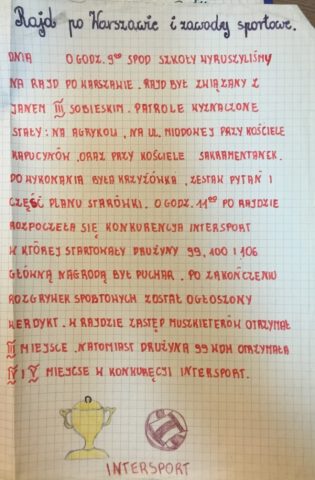 Rajd po Warszawie i zawody sportowe.
DNIA O GODZ. 9⁰⁰ SPOD SZKOŁY WYRUSZYLIŚMY
NA RAJD PO WARSZAWIE. RAJD BYŁ ZWIĄZANY Z
JANEM III SOBIESKIM. PATROLE WYZNACZONE
STAŁY: NA AGRYKOLI, NA UL. MIODOWEJ PRZY KOŚCIELE
KAPUCYNÓW, ORAZ PRZY KOŚCIELE SAKRAMENTANEK.
DO WYKONANIA BYŁA KRZYŻÓWKA, ZESTAW PYTAŃ I
CZĘŚĆ PLANU STARÓWKI. O GODZ. 11⁰⁰ PO RAJDZIE
ROZPOCZEŁA SIĘ KONKURENCJA INTERSPORT
W KTÓREJ STARTOWAŁY DRUŻYNY 99, 100 I 106
GŁÓWNĄ NAGRODĄ BYŁ PUCHAR. PO ZAKOŃCZENIU
ROZGRYWEK SPORTOWYCH ZOSTAŁ OGŁOSZONY
WERDYKT. W RAJDZIE ZASTĘP MUSZKIETERÓW OTRZYMAŁ
III MIEJSCE, NATOMIAST DRUŻYNA 99 WDH OTRZYMAŁA
IV I V MIEJSCE W KONKURĘCJI INTERSPORT.
INTERSPORT